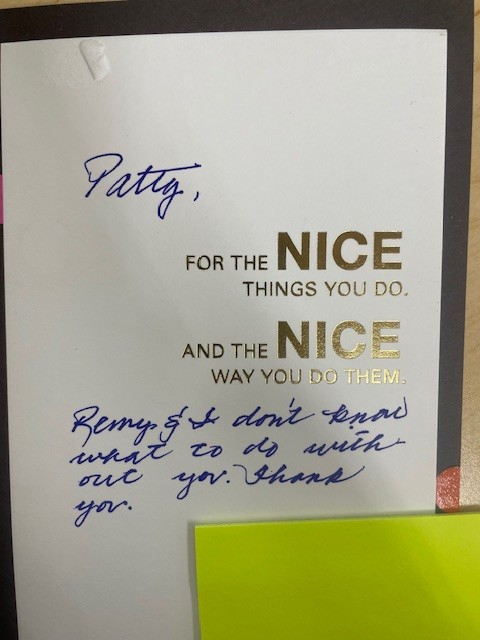 Patty,
FOR THE NICE
THINGS YOU DO.
AND THE NICE
WAY YOU DO THEM.
Remy & I don't know
what to do with
out you. Thank
you.